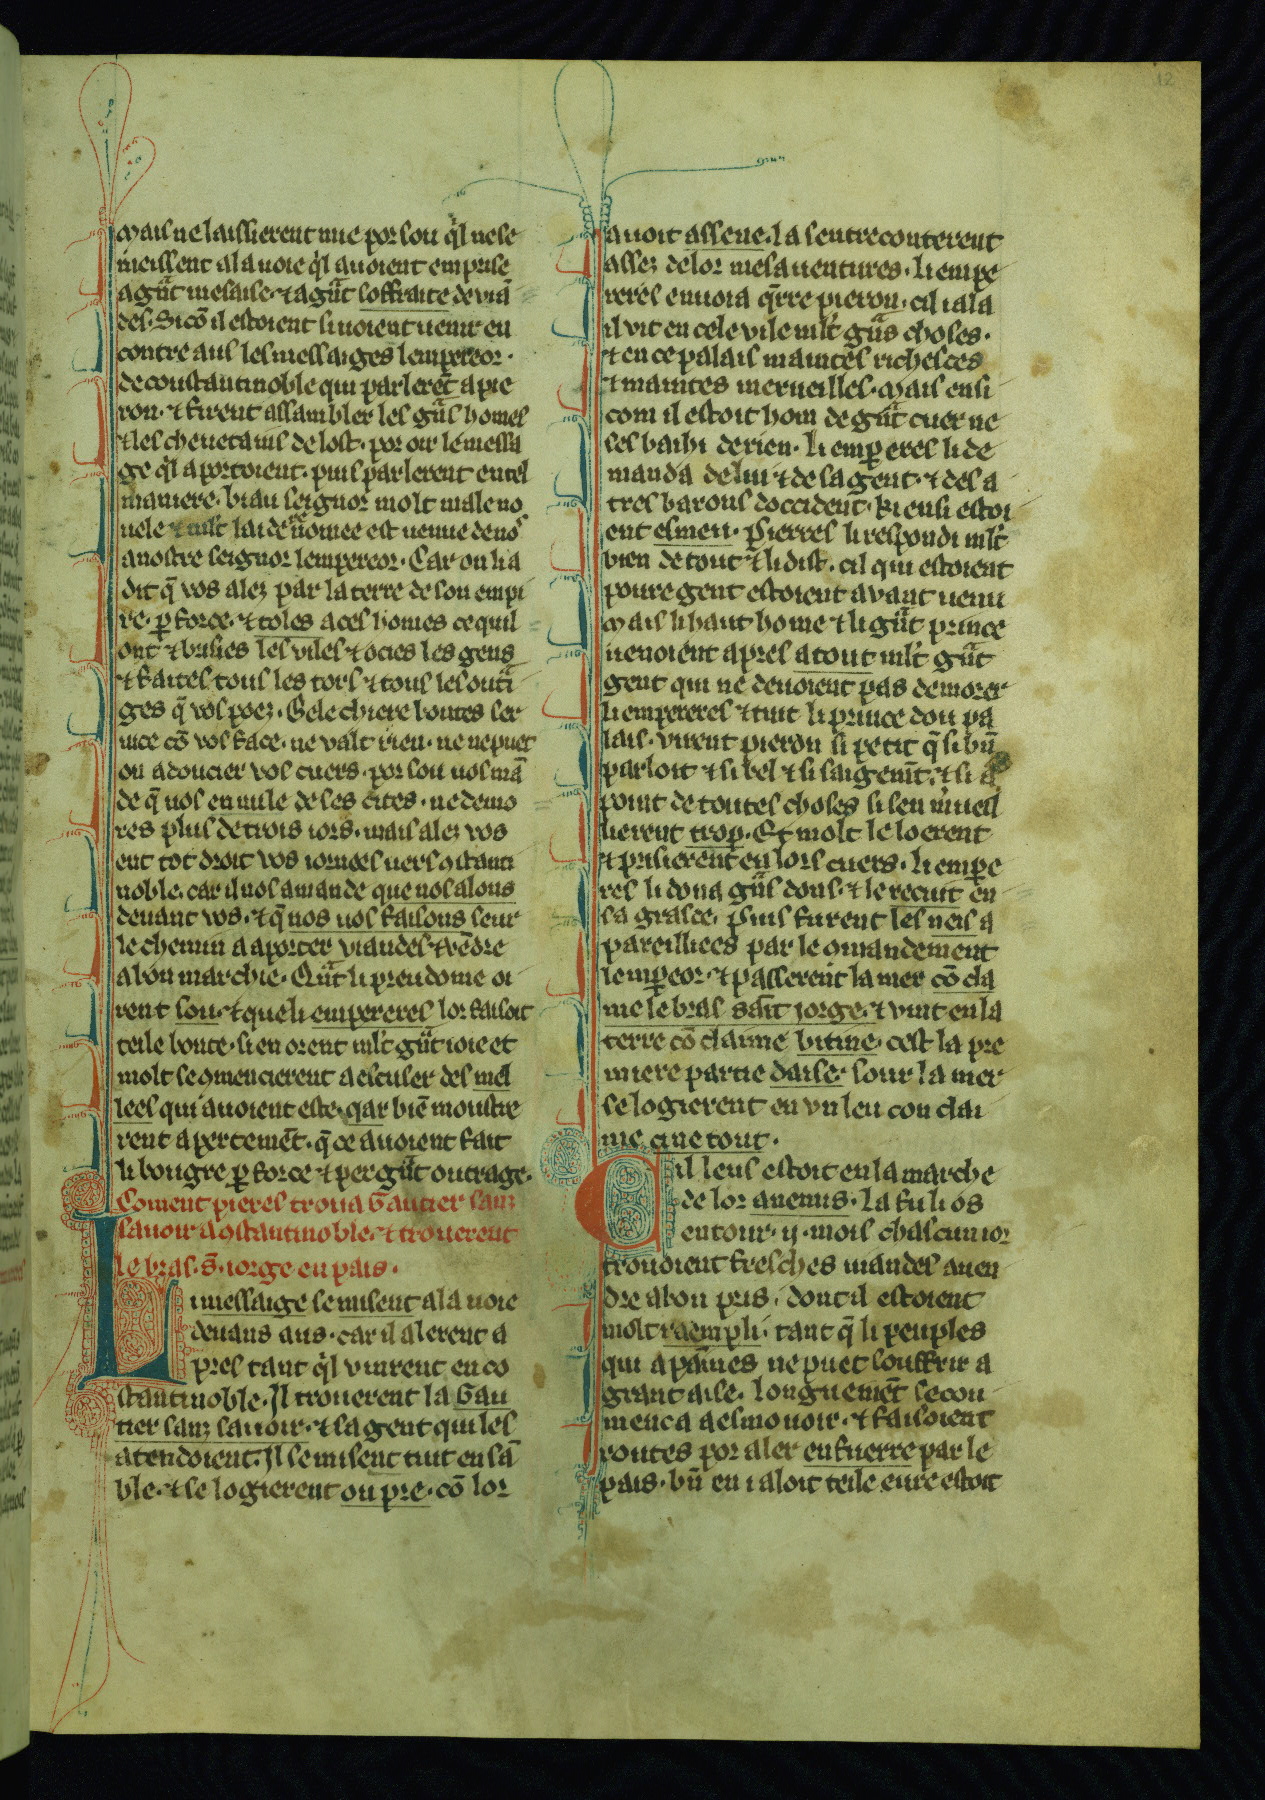 12
Mais ne laissierent mie por sou q'l ne se
meissent a la uoie q'l auoient emprise
a gñt mesaise ⁊ a gñt soffraite de uiã
des. Si cõ il estoient si uoient uenir en
contre aus les messaiges lempereor
de coustantinoble qui parlerẽt a pie
ron ⁊ firent assambler les gñs homes
⁊ les cheuetains de lost por oir le messa
ge q'l aportoient. puis parlerent en tel
maniere. biau seignor molt male no
uele ⁊ mlt laide renomee est uenue de uos
a nostre seignor lempereor. Car on li a
dit q̃ vos alez par la terre de son empi
re p force ⁊ toles a ces homes ce quil
ont ⁊ brisies les viles ⁊ ocies les gens
⁊ faites tous les tors ⁊ tous les outra
ges q̃ vos poez. Bele chiere bontes ser
uice cõ vos face ne valt rien ne ne puet
on adoucier vos cuers. por sou uos mã
de q̃ uos en nule de ses cites ne demo
res plus de trois iors. mais alez vos
ent tot droit vos iornees uers ꝯstanti
noble. car il uos amande que uos alons
deuant vos ⁊ q̃ nos uos faisons seur
le chemin aaporter viandes ⁊ vẽdre
a bon marchie. Qñt li preudome oi
rent sou ⁊ que li empereres lor faisoit
teile bonte si en orent mlt gñt ioie et
molt se ꝯmencierent a escuser des mel
lees qui auoient este. qar biẽ monstre
rent apertemẽt q̃ ce auoient fait
li bougre p force ⁊ per gñt outrage.
Coment pieres troua Gautier sanz
sauoir a ꝯstantinoble ⁊ trouerent
le bras .S. iorge en pais.
Li messaige se misent a la uoie
deuans aus. car il alerent a
pres tant q'l vinrent en co
stantinoble. Il trouerent la Gau
tier sanz sauoir ⁊ sa gent qui les
atendoient. Il se misent tuit ensã
ble ⁊ se logierent ou pre cõ lor
auoit assene. la sentreconterent
assez de lor mesauentures. li empe
reres enuoia q̃rre pieron. cil i ala
il vit en cele vile mlt gñs choses.
⁊ en ce palais maintes richesces
⁊ maintes merueilles. Mais ensi
com il estoit hom de gñt cuer ne
ses bahi de rien. li emperes li de
manda de lui ⁊ de sa gent ⁊ des a
tres barons doccident. ki ensi estoi
ent esmeu. Pierres li respondi mlt
bien de tout ⁊ li dist. cil qui estoient
poure gent estoient auant uenu
Mais li haut home ⁊ li gñt prince
uenoient apres a tout mlt gñt
gent qui ne deuoient pas demorer
li empereres ⁊ tuit li prince dou pa
lais. virent pieron si petit q̃ si bñ
parloit ⁊ si bel ⁊ si saigemt ⁊ si a
point de toutes choses si sen m'ueil
lierent trop. Et molt le loerent
⁊ prisierent en lors cuers. li empe
res li dona gñs dons ⁊ le recuit en
sa grasce. Puis furent les neis a
pareilliees par le ꝯmandement
lempeor ⁊ passerent la mer cõ cla
me le bras saĩt jorge ⁊ vint en la
terre cõ claime bitine. cest la pre
miere partie daise. sour la mer
se logierent en vn leu con clai
me ciuetout.
Cil leus estoit en la marche
de lor anemis. la fu li os
entour .ij. mois chascun ior
trouoient fresches viandes a uen
dre a bon pris. dont il estoient
molt raempli. tant q̃ li peuples
qui a paines ne puet souffrir a
grant aise longuemẽt se cou
menca a esmouoir ⁊ faisoient
routes por aler en fuerre par le
pais. bñ en i aloit teile eure estoit